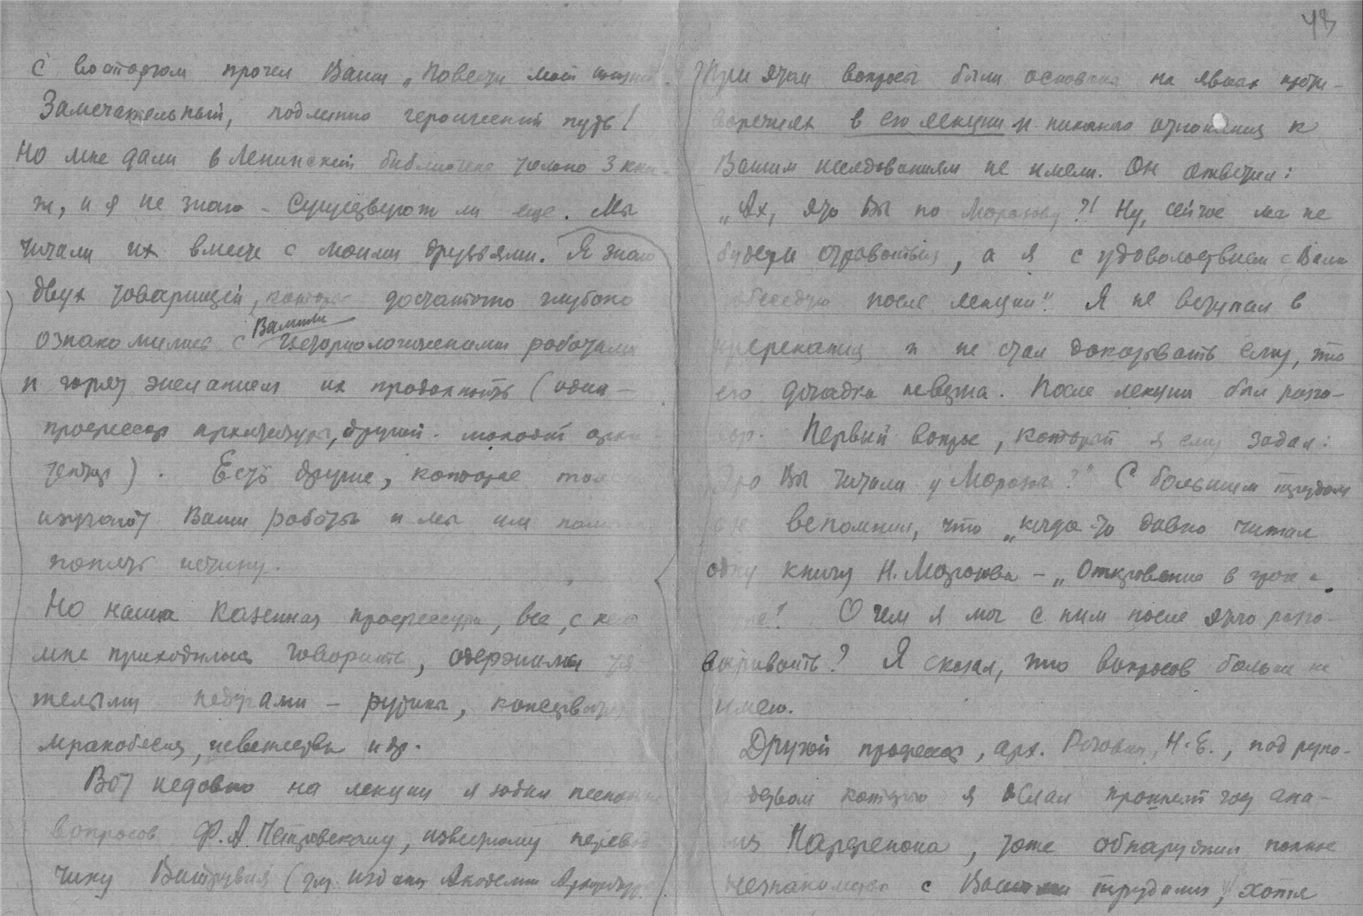 С восторгом прочел Ваши „Повести моей жизни".
Замечательный, подлинно героический путь!
Но мне дали в Ленинской библиотеке только 3 кни-
ги, и я не знаю – существуют ли еще. Мы
читали их вместе с моими друзьями. Я знаю
двух товарищей, которые достаточно глубоко
ознакомились с Вашими историологическими работами
и горят желанием их продолжить (один –
профессор архитектуры, другой – молодой архи-
тектор). Есть другие, которые только
изучают Ваши работы и мы им помогаем
понять истину.
Но наша казенная профессура, все, с кем
мне приходилось говорить, одержимы тя-
желыми недугами – рутины, консерватизма,
мракобесия, невежества и др.
Вот недавно на лекции я задал несколько
вопросов Ф.А. Петровскому, известному перевод-
чику Витрувия (для издания Академии Архитектуры
43
При этом вопросы были основаны на явных проти-
воречиях в его лекции и никакого отношения к
Вашим исследованиям не имели. Он ответил:
„Ах, это Вы по Морозову?! Ну, сейчас мы не
будем отрываться, а я с удовольствием с Вами
побеседую после лекции". Я не вступал в
пререкания и не стал доказывать ему, что
его догадка неверна. После лекции был разго-
вор. Первый вопрос, который я ему задал:
„Что Вы читали у Морозова?" С большим трудом
он вспомнил, что „когда-то давно читал
одну книгу Н. Морозова – „Откровение в грозе и
буре". О чем я мог с ним после этого разго-
варивать? Я сказал, что вопросов больше не
имею.
Другой профессор, арх. Н.Е., под руко-
водством которого я делал прошлый год ана-
лиз Парфенона, тоже обнаружил полное
незнакомство с Вашими трудами, хотя